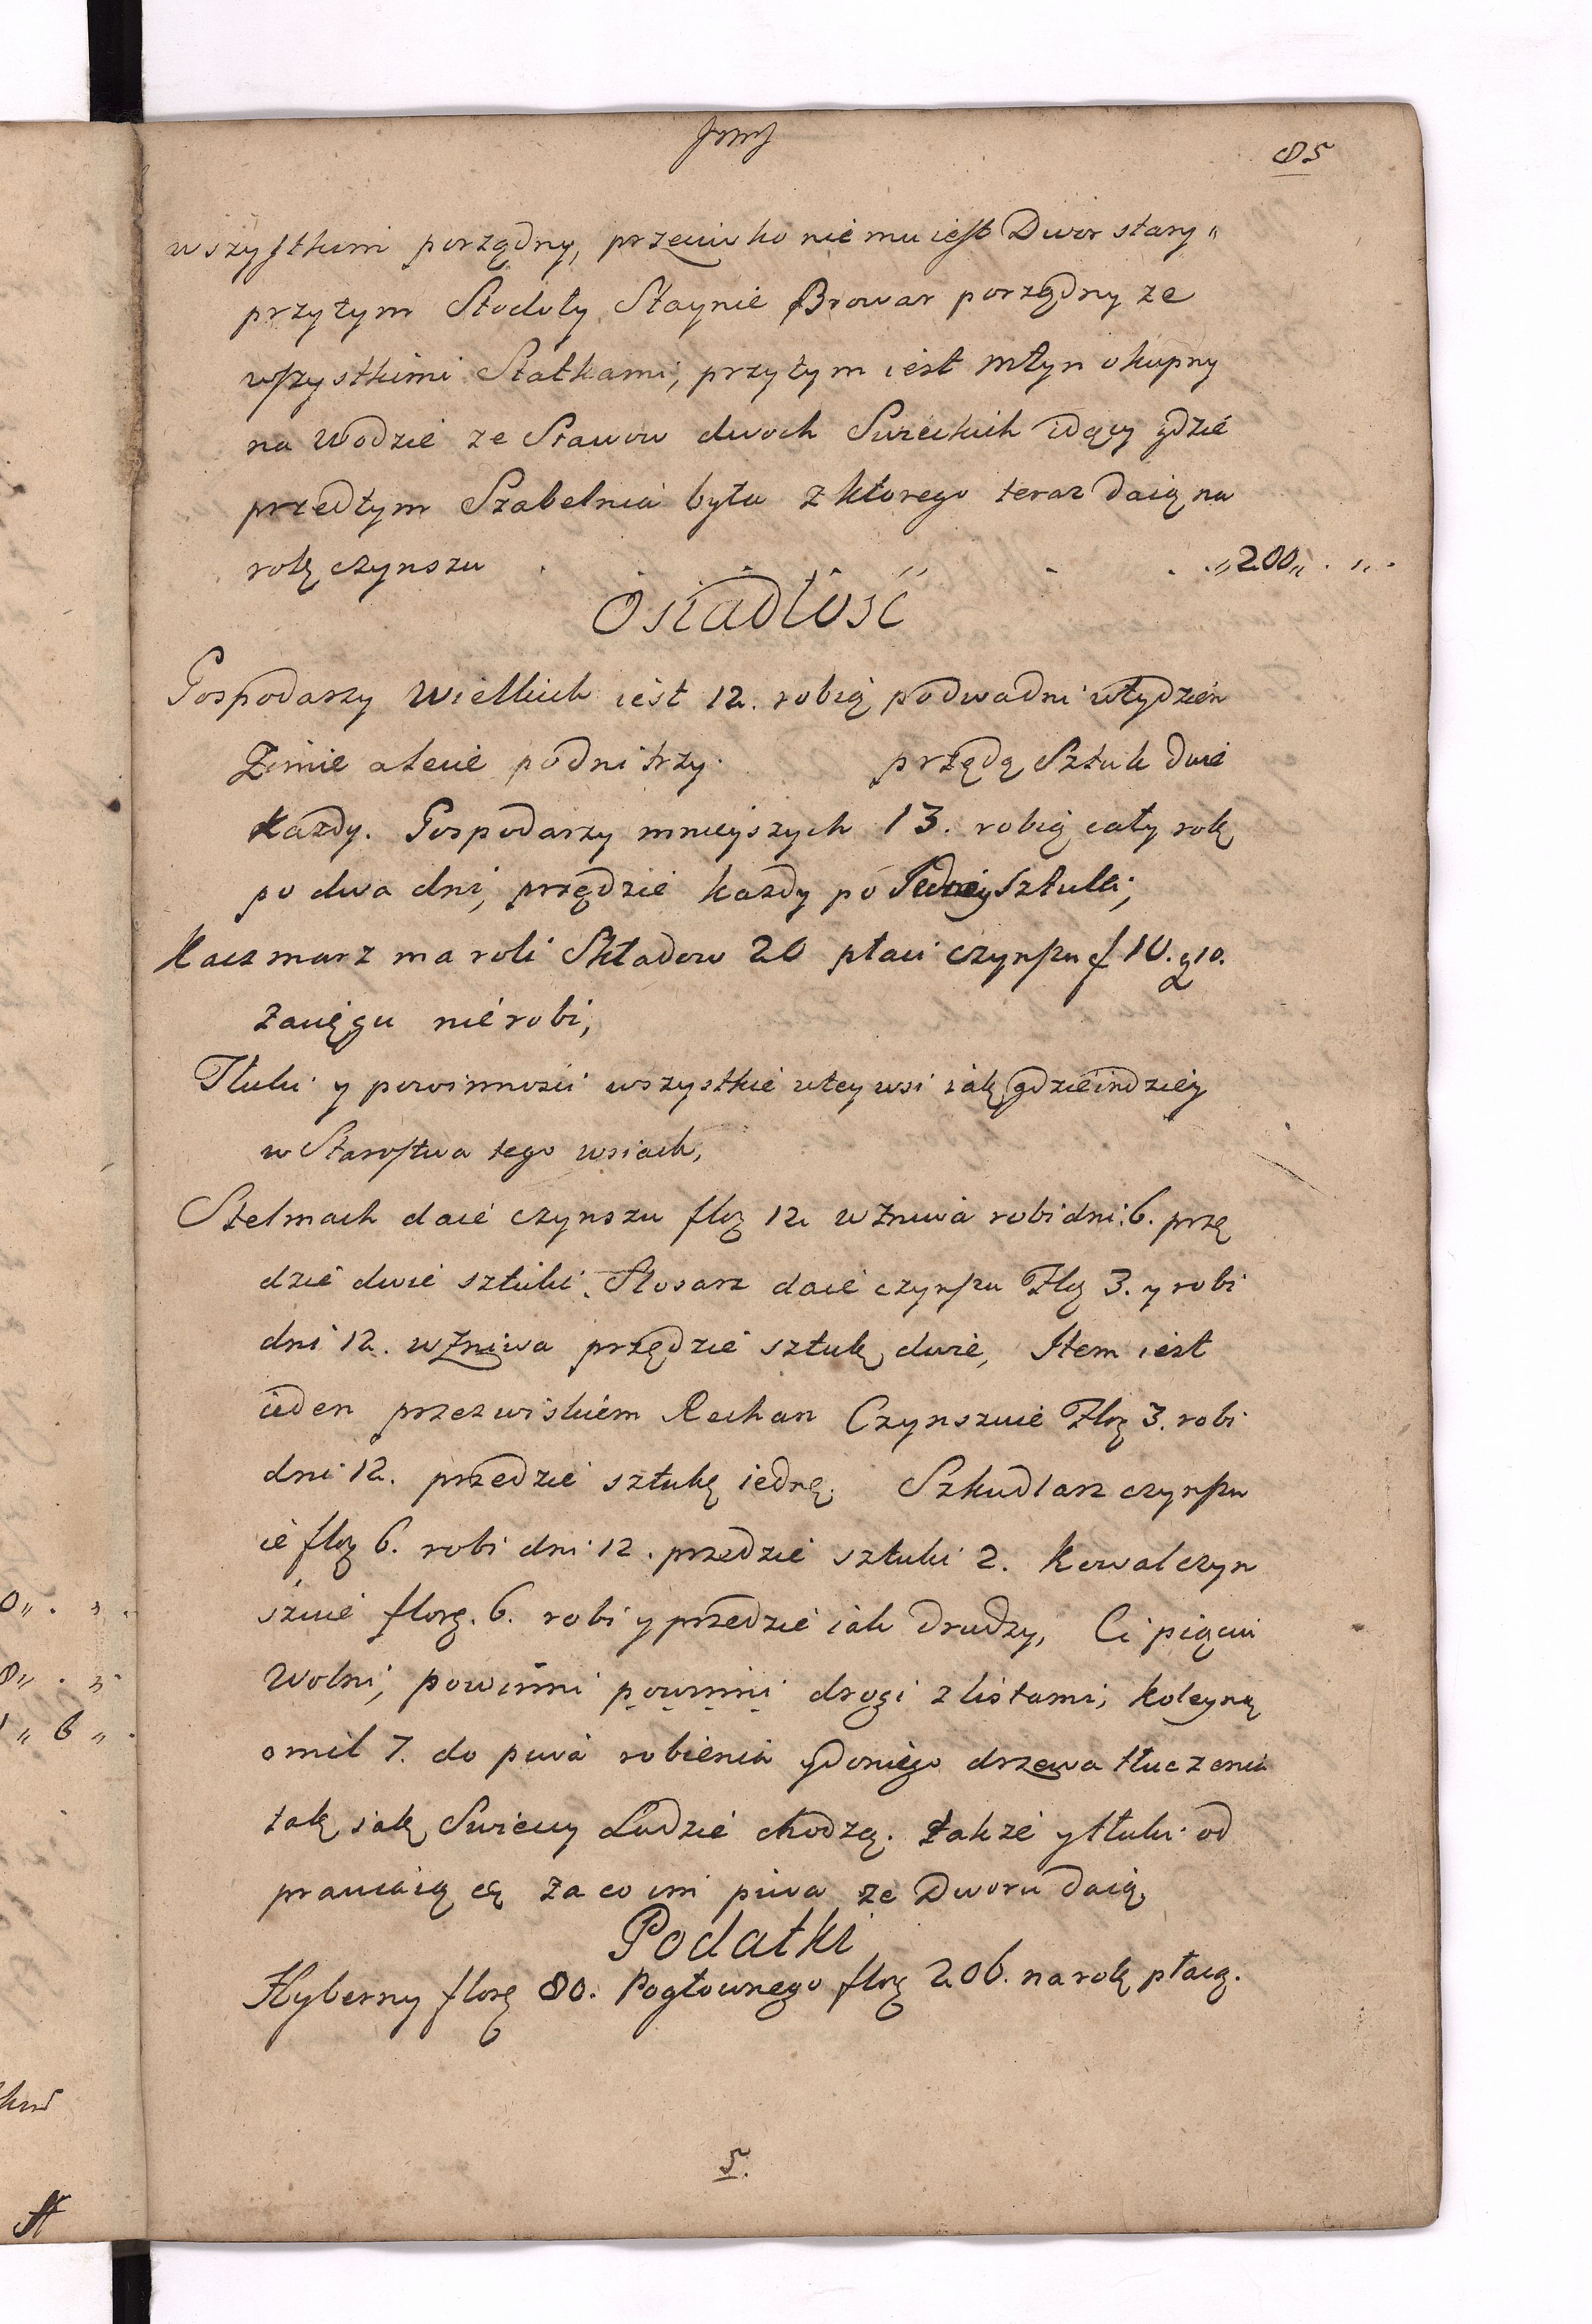 85
wszystkim porządny, przeciwko niemu iest Dwor stary
przytym Stodoły Staynie Browar porządny ze
wszystkimi Statkami, przytym iest Młyn okupny
na Wodzie ze Stawow dwoch Swieckich idący gdzie
przedtym Szabelnia była z ktorego teraz daią na
rok czynszu . . . . „200„ . „ .
Osiadłość
Gospodarzy Wielkich iest 12. robią podwadni wtydzień
Zimie alecie podni trzy. przędą Sztuk dwie
Kazdy. Gospodarzy mnieyszych 13. robią cały rok
po dwa dni, przędzie kazdy po Jedney Sztuki,
Kaczmarz ma roli Składow 20 płaci czynszu f 10. g 10.
Zacięgu nie robi,
Tłuki y powinnosci wszystkie wtey wsi iak gdzieindziey
w Starostwa tego wsiach,
Stelmach daie czynszu flor 12 w Zniwa robi dni 6. prze
dzie dwie sztuki. Slosarz daie czynszu Zlo 3. y robi
dni 12. w Zniwa przędzie sztuk dwie, Item iest
ieden przezwiskiem Rechan Czynszuie Zlo 3. robi
dni 12. przedzie sztukę iedną. Szkudlarz czynszu
ie flor 6. robi dni 12. przedzie sztuki 2. Kowal czyn
szuie flore. 6. robi y przedzie iak drudzy, Ci pięciu
Wolni, powinni powinni drogi z listami, koleyną
o mil 7. do piwa robienia y doniego drzewa tłuczenia
tak iak Swieccy Ludzie chodzą. także y tłuki od
prawuią cą za co im piwa ze Dworu daią,
Podatki
Hyberny flore 80. Pogłownego flor 206. na rok płacą.
5.